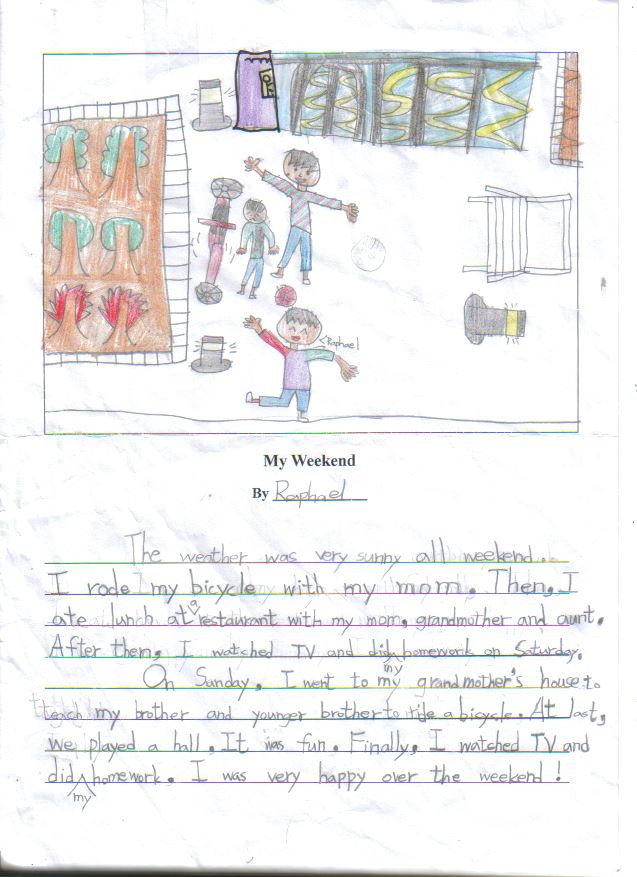 Raphael
My Weekend
By Raphael
The weather was very sunny all weekend.
I rode my bicycle with my mom. Then, I
ate lunch at a restaurant with my mom, grandmother and aunt.
After then, I watched TV and did my homework on Saturday.
On Sunday, I went to my grandmother's house to
teach my brother and younger brother to ride a bicycle. At last,
we played a ball. It was fun. Finally, I watched TV and
did my homework. I was very happy over the weekend!